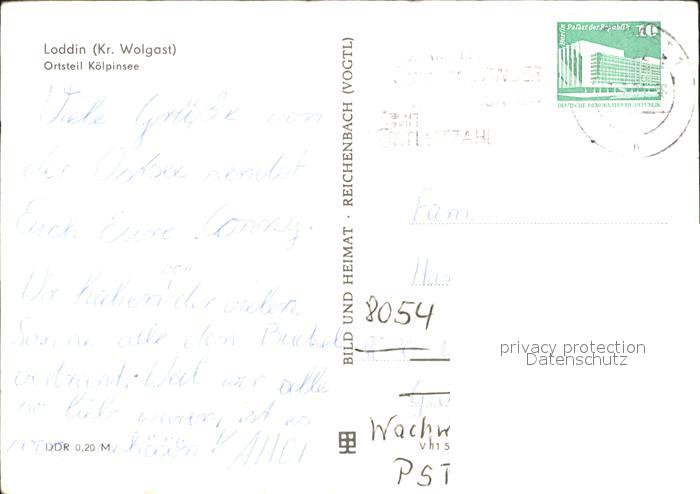 Loddin (Kr. Wolgast)
Ortsteil Kölpinsee
Viele Grüße von
der Ostsee sendet
Euch Eure Conny.
Wir haben von der vielen
Sonne alle den Buckel
verbrannt. Weil wir alle
so lieb waren, ist es
schön! AHOI
DDR 0,20 M
BILD UND HEIMAT · REICHENBACH (VOGTL)
Berlin Palast der Republik
10
DEUTSCHE DEMOKRATISCHE REPUBLIK
Fam.
8054
privacy protection
Datenschutz
V 11 5